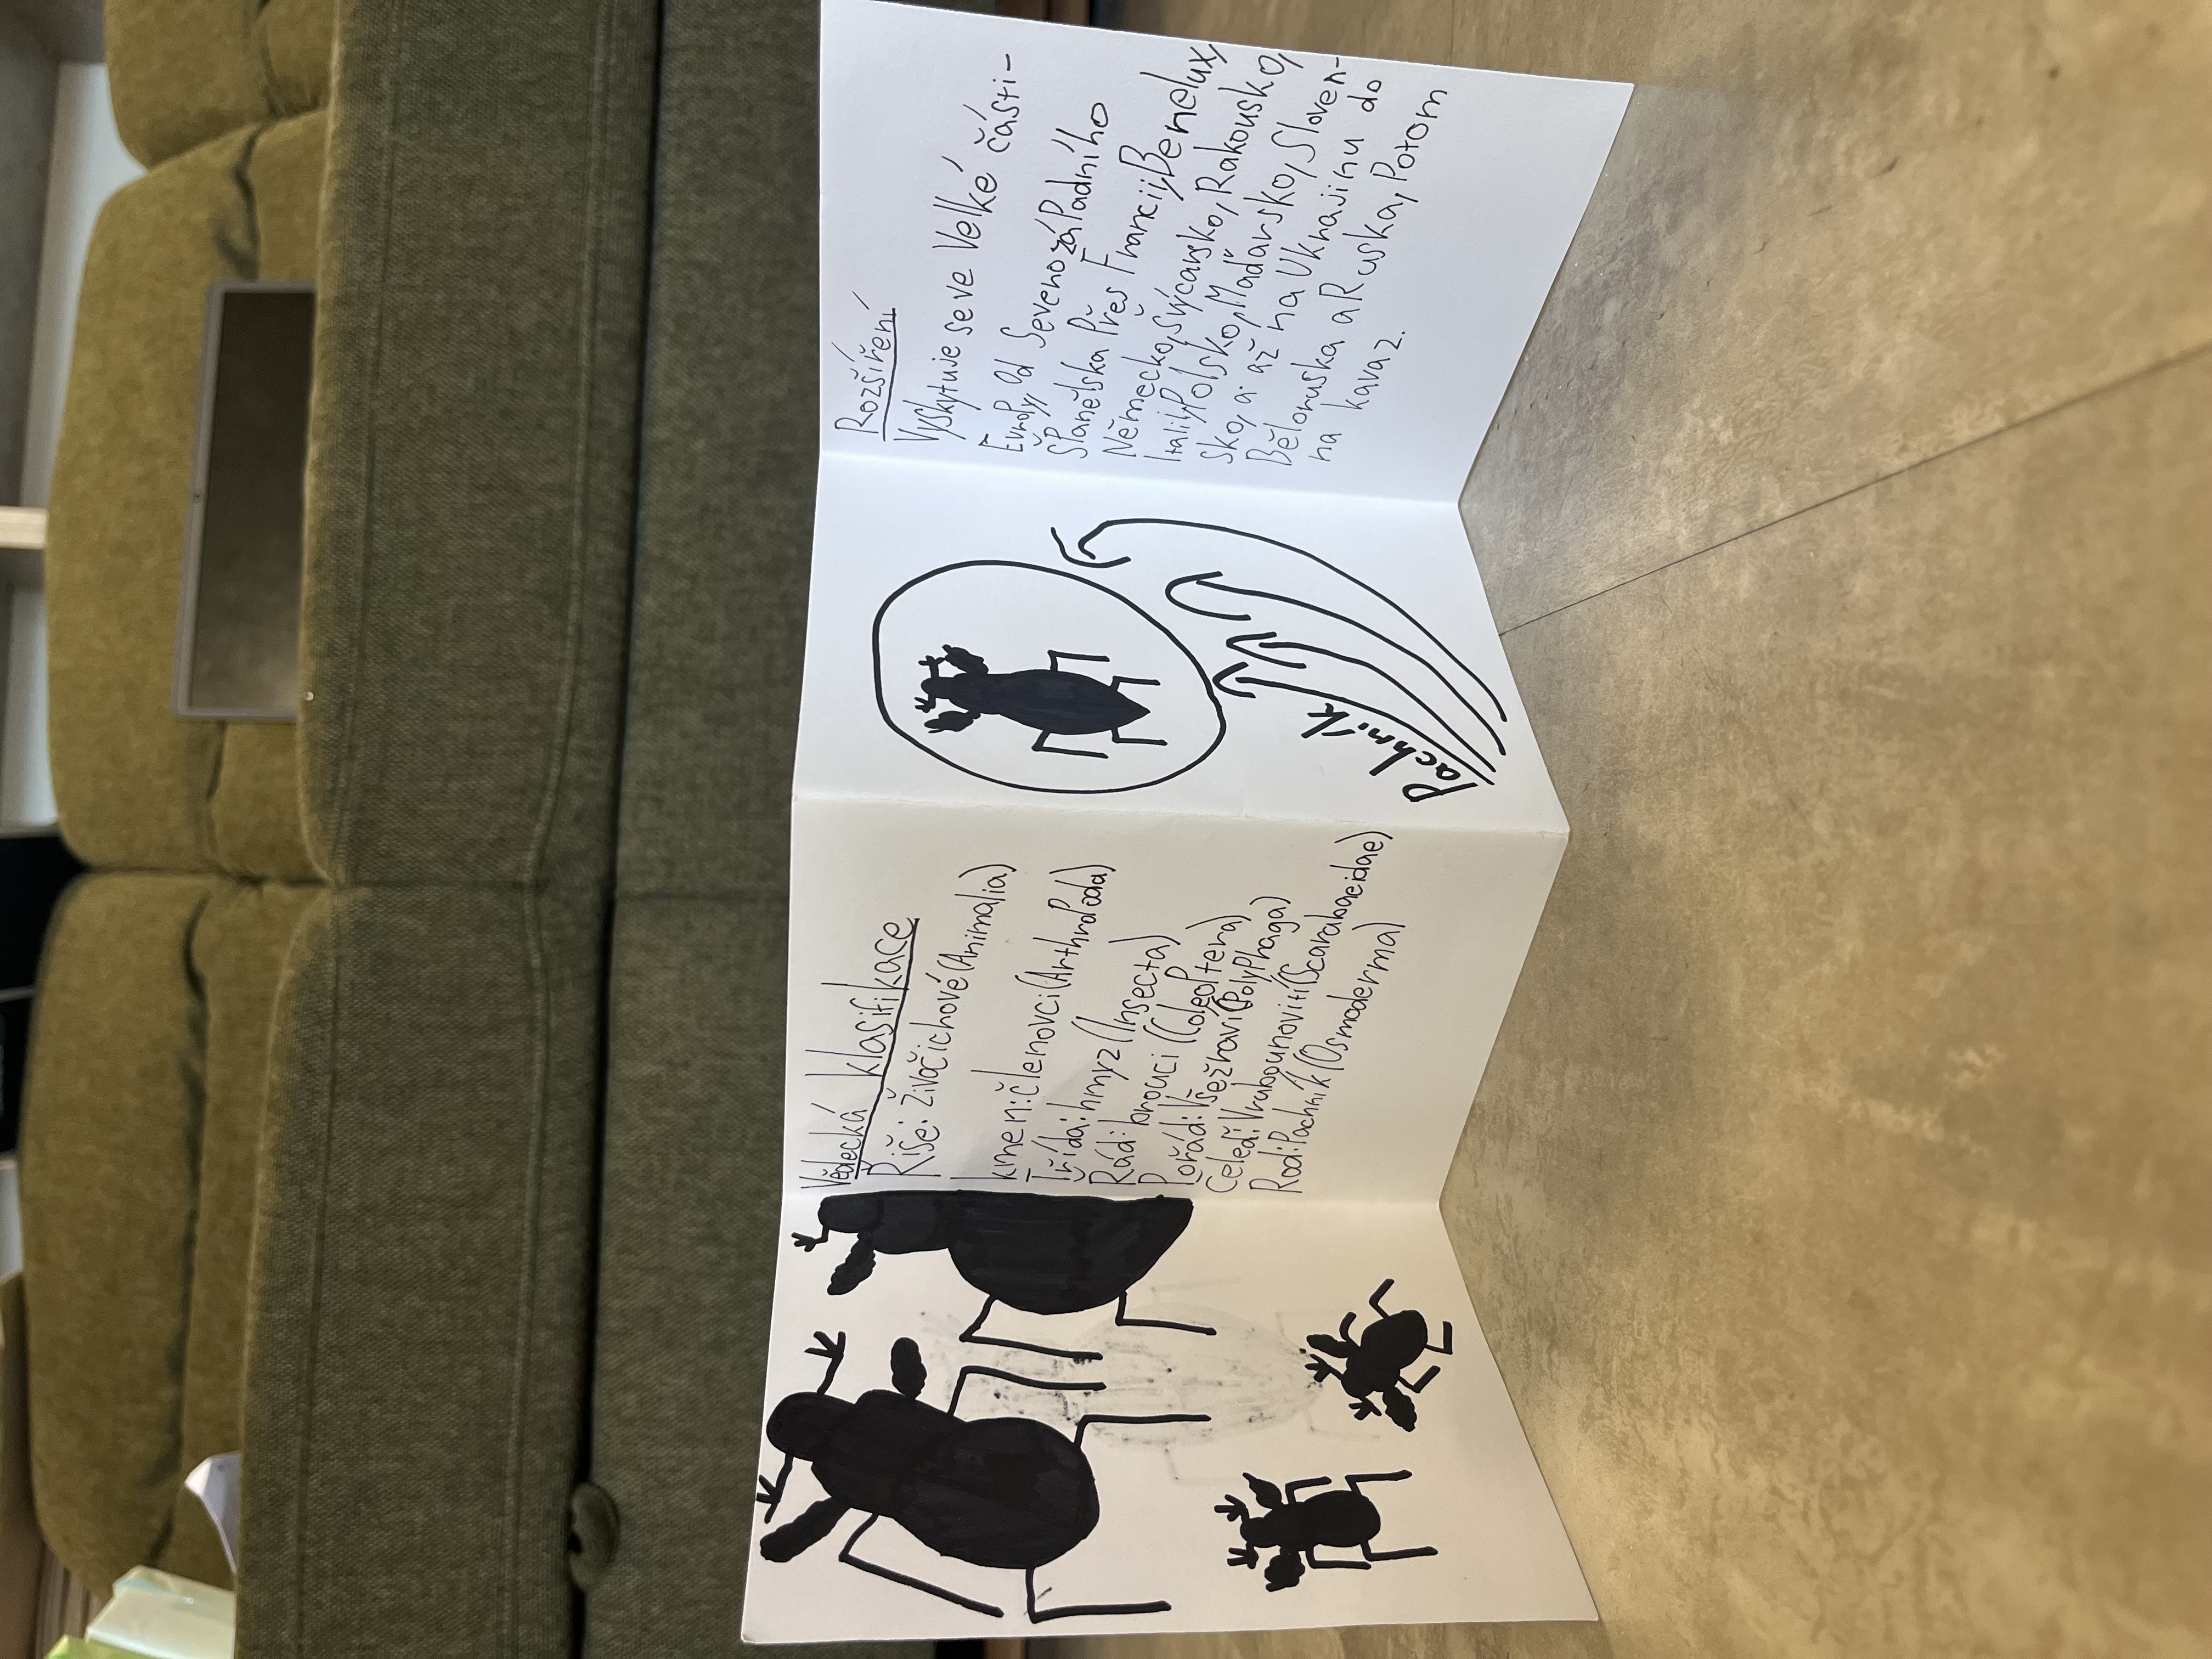 Vědecká klasifikace
Říše: Živočichové (Animalia)
kmen: členovci (Arthropoda)
Třída: hmyz (Insecta)
Řád: brouci (Coleoptera)
Pořádí: Všežraví (Polyphaga)
Čeleď: Vrubounovití (Scarabaeidae)
Rod: Pachník (Osmoderma)
Pachník
Rozšíření
Vyskytuje se ve Velké části-
Evropy, od Severozápadního
Španělska Přes Francii, Benelux,
Německo, Švýcarsko, Rakousko,
Itálii, Polsko, Maďarsko, Sloven-
sko, a až na Ukrajinu do
Běloruska a Ruska, Potom
na kavaz.